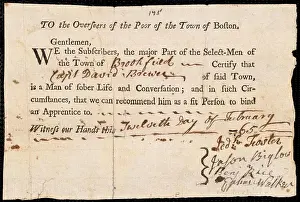 TO the Overseers of the Poor of the Town of Boston.
Gentlemen,
WE the Subscribers, the major Part of the Select-Men of
the Town of Brookfield Certify that
Capt David Brewer of said Town,
is a Man of sober Life and Conversation; and in such Cir-
cumstances, that we can recommend him as a fit Person to bind
an Apprentice to.
Witness our Hands this Twelveth day of February
1765
Jedh Foster
Jason Biglow
Benj Rice